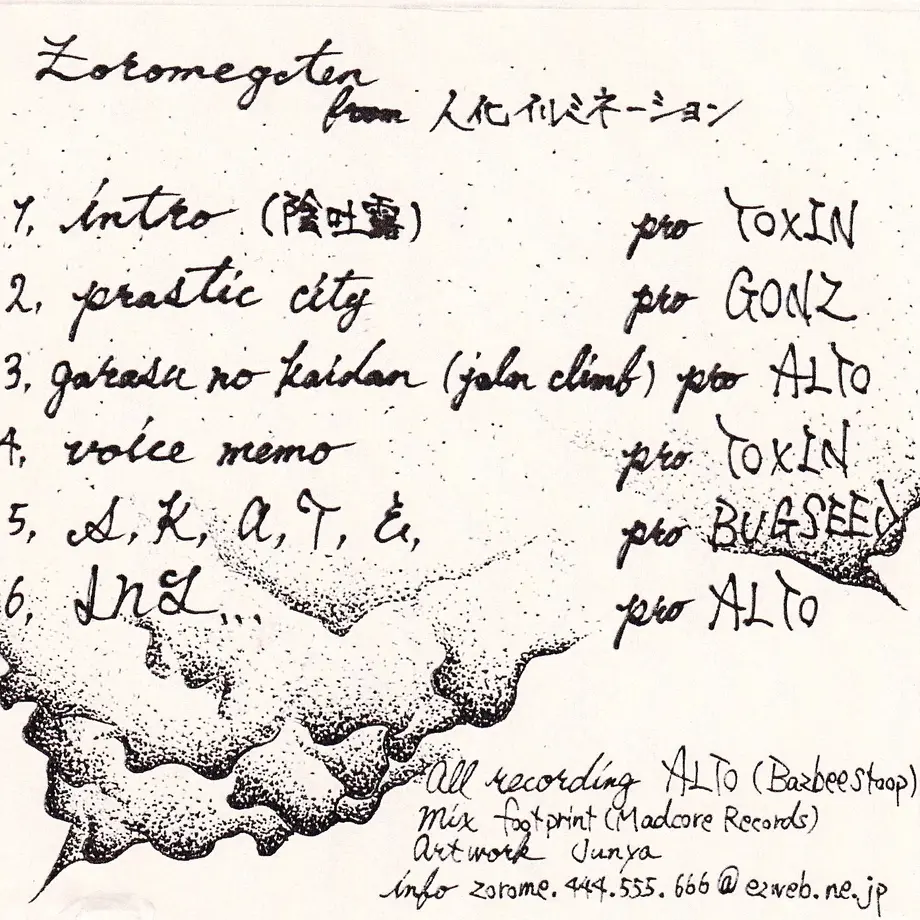 Zoromegaten
from 人化イルミネーション
1, intro (陰吐露) pro TOXIN
2, prastic city pro GONZ
3, garasu no kaidan (jaln climb) pro ALTO
4, voice memo pro TOXIN
5, S, K, A, T, E, pro BUGSEED
6, InI... pro ALTO
All recording ALTO (Bazbeestoop)
Mix footprint (Madcore Records)
Artwork Junya
info zorome.444.555.666@ezweb.ne.jp